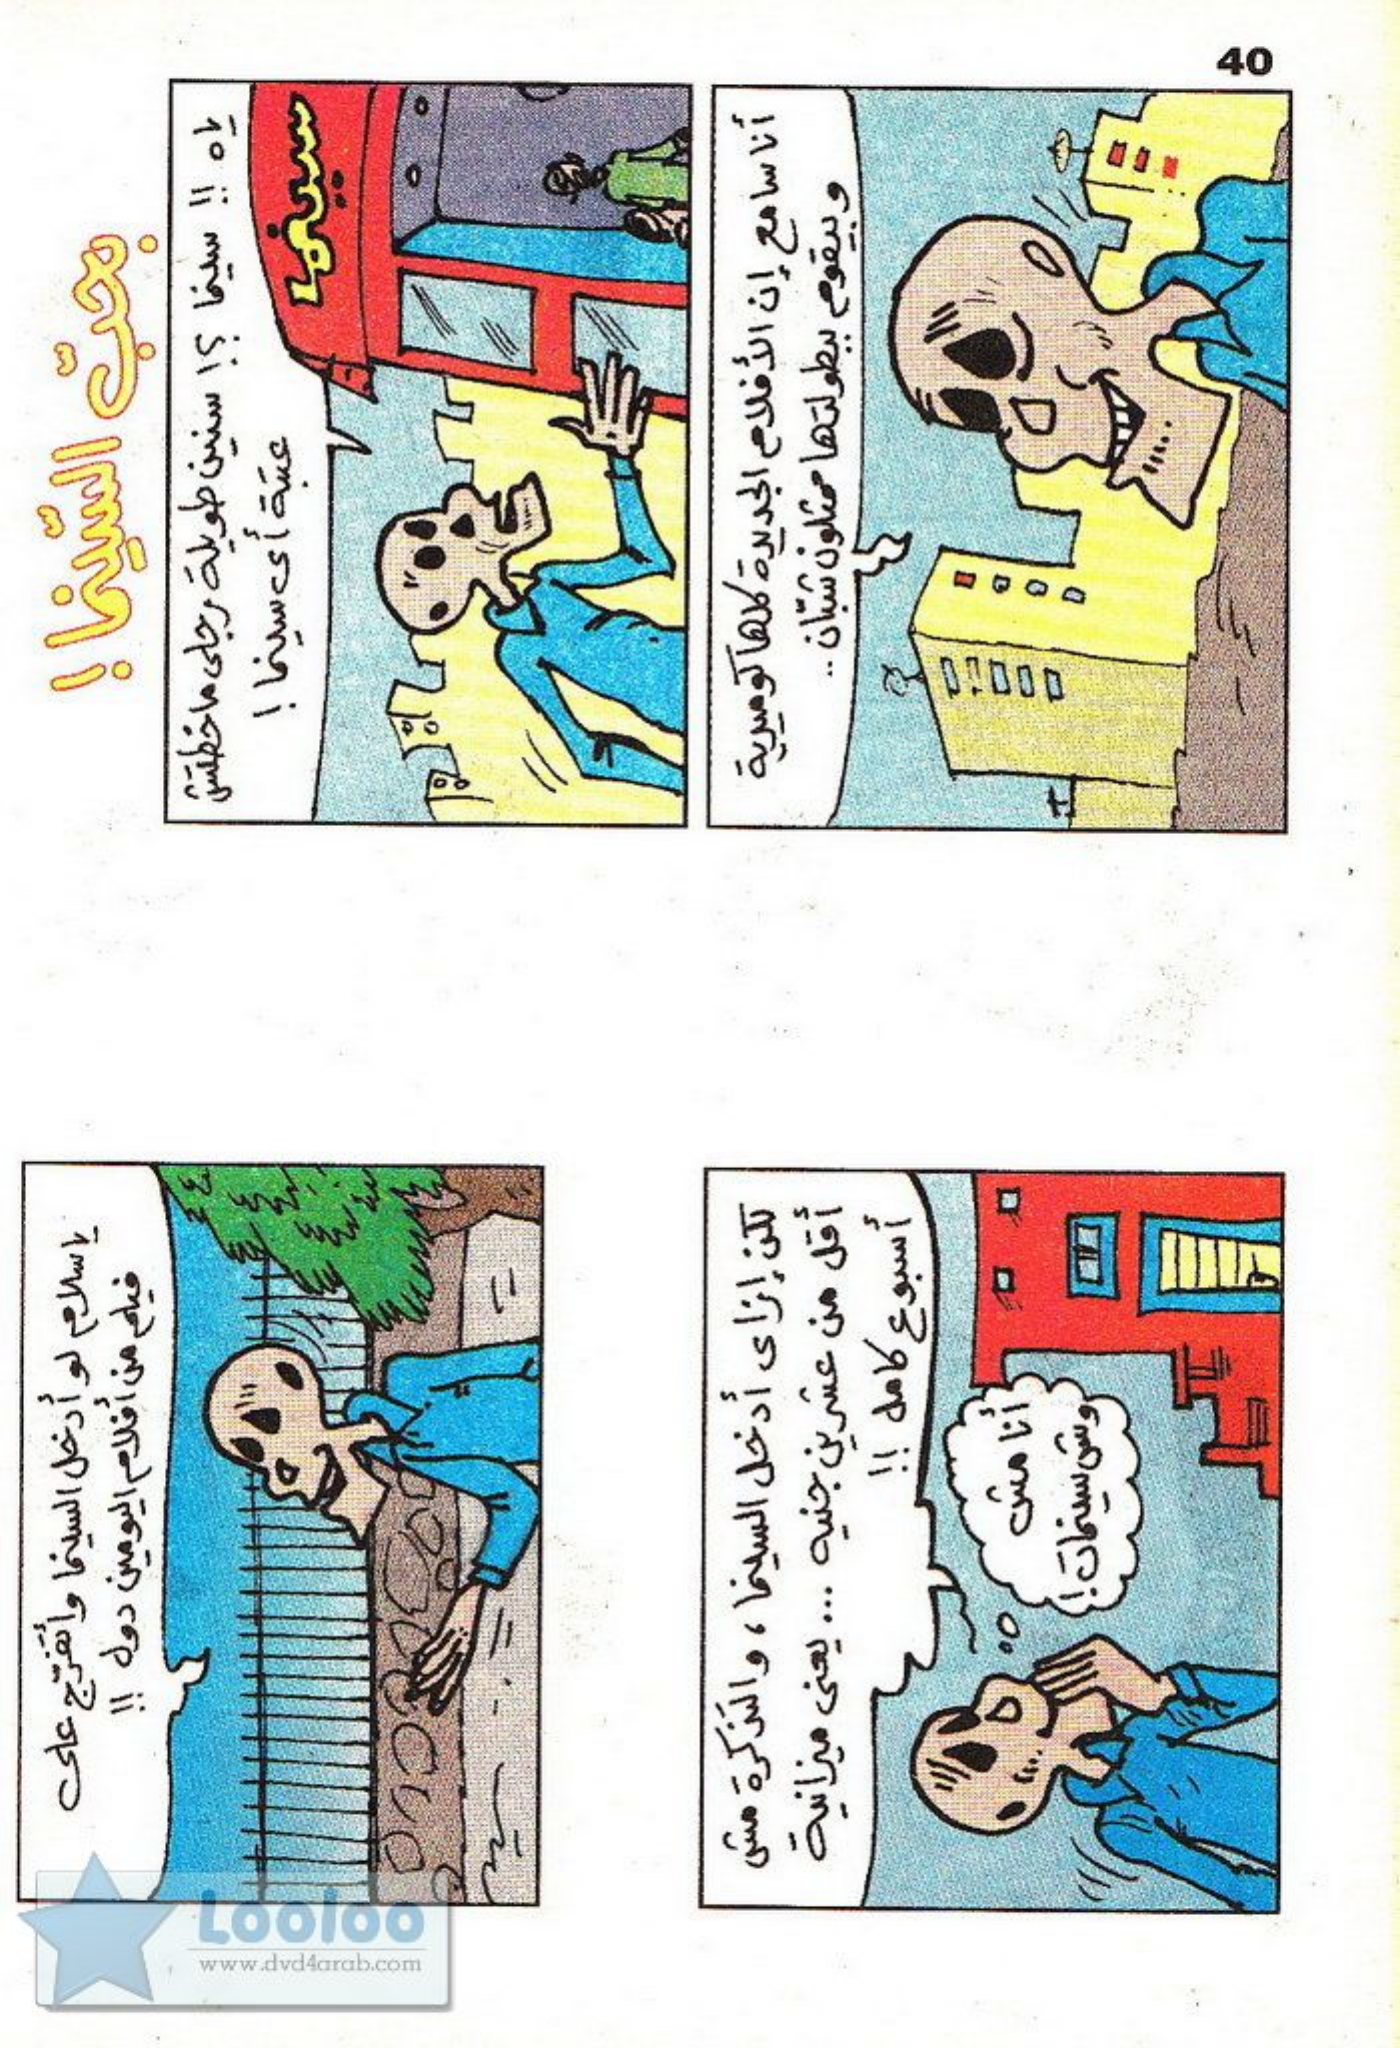 40
بحبّ السّينما !
ياه !! سينما ؟! سنين طويلة رجلى ما خطتش
عتبة أى سينما !
سينما
أنا سامع إن الأفلام الجديدة كلها كوميدية
وبيقوم ببطولتها ممثلون شبّان ..
يا سلام لو أدخل السينما وأتفرّج على
فيلم من أفلام اليومين دول !!
لكن إزاى أدخل السينما ، والتذكرة مش
أقل من عشرين جنيه ... يعنى ميزانية
أسبوع كامل !!
أنا مش
وش سينمات !
Looloo
www.dvd4arab.com